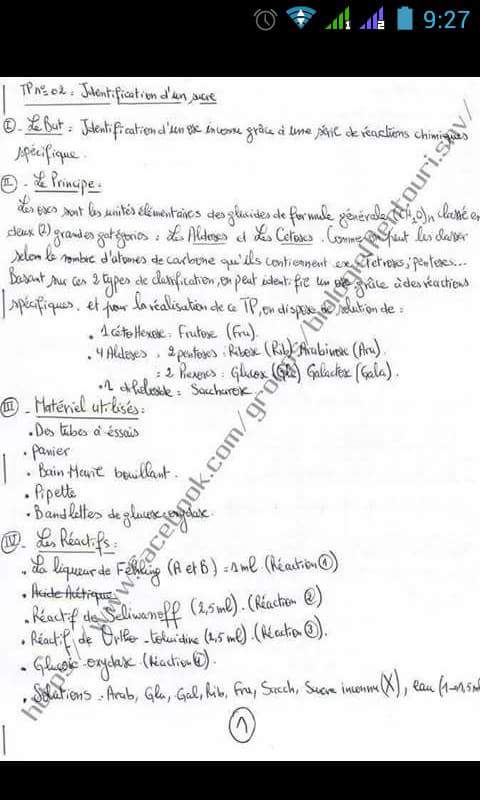 9:27
TP n° 02 : Identification d'un sucre
I - Le But : Identification d'un ose inconnu grâce à une série de réactions chimiques
spécifique.
II - Le Principe :
Les oses sont les unités élémentaires des glucides de formule générale (CH2O)n classé en
deux (2) grandes catégories : Les Aldoses et Les Cetoses. Comme on peut les classer
selon le nombre d'atomes de carbone qu'ils contiennent ex : tetroses, pentoses...
Basant sur ces 2 types de classification, on peut identifié un ose grâce à des réactions
spécifiques. et pour la réalisation de ce TP, on dispose de solution de :
• 1 céto Hexose : Frutose (Fru).
• 4 Aldoses : 2 pentoses : Ribose (Rib) Arabinose (Ara).
: 2 Hexoses : Glucose (Glu) Galactose (Gala).
• 1 : Saccharose
III - Matériel utilisés :
• Des tubes à éssais
• Panier
• Bain Marie bouillant.
• Pipette
• Bandlettes de glucose oxydase.
IV - Les Réactifs :
• La liqueur de Fehling (A et B) = 1 ml. (Réaction 1)
• Acide Acétique
• Réactif de Seliwanoff (2,5 ml). (Réaction 2)
• Réactif de Ortho-toluidine (2,5 ml). (Réaction 3).
• Glucose oxydase (Réaction 4).
• Solutions : Arab, Glu, Gal, Rib, Fru, Sacch, Sucre inconnu (X), eau (1 1,5 ml
1
https://www.facebook.com/groups/biologiementouri.snv/